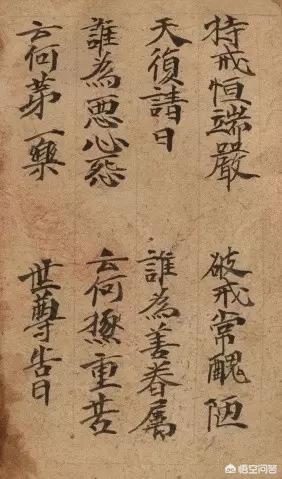 持戒恒端嚴 破戒常醜陋
天復請曰 誰為善眷屬
誰為惡心怨 云何極重苦
云何苐一樂 世尊告曰
悟空问答